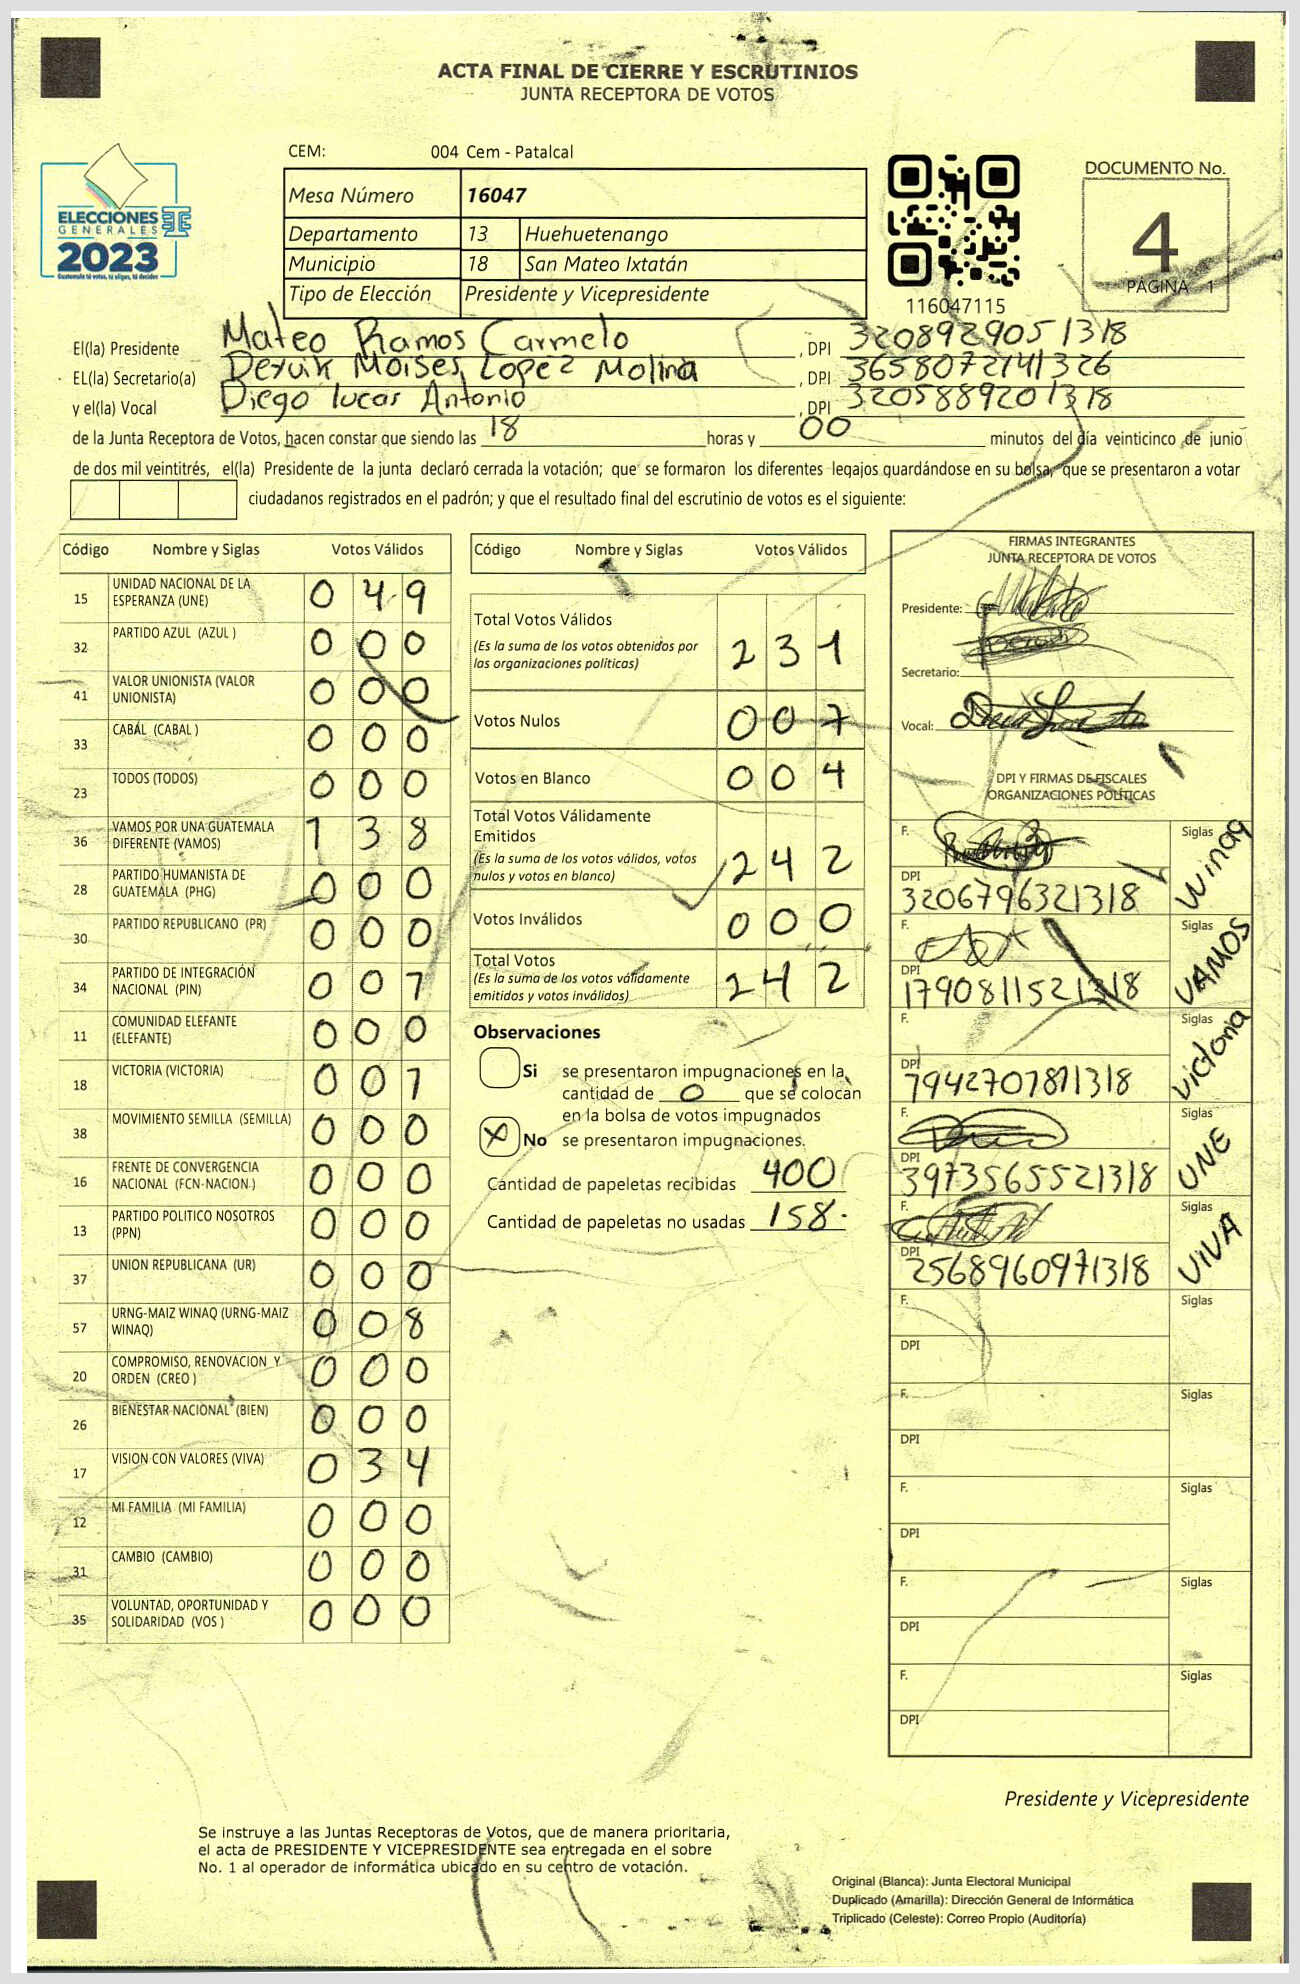 ACTA FINAL DE CIERRE Y ESCRUTINIOS
JUNTA RECEPTORA DE VOTOS
ELECCIONES
GENERALES
2023
Guatemala tú votas, tú eliges, tú decides
CEM: 004 Cem - Patalcal
Mesa Número 16047
Departamento 13 Huehuetenango
Municipio 18 San Mateo Ixtatán
Tipo de Elección Presidente y Vicepresidente
116047115
DOCUMENTO No.
4
PAGINA 1
El(la) Presidente Mateo Ramos Carmelo, DPI 3208929051318
EL(la) Secretario(a) Deryik Moises Lopez Molina, DPI 3658072141326
y el(la) Vocal Diego Lucas Antonio, DPI 3205889201318
de la Junta Receptora de Votos, hacen constar que siendo las 18 horas y 00 minutos del día veinticinco de junio
de dos mil veintitrés, el(la) Presidente de la junta declaró cerrada la votación; que se formaron los diferentes legajos guardándose en su bolsa, que se presentaron a votar
ciudadanos registrados en el padrón; y que el resultado final del escrutinio de votos es el siguiente:
Código Nombre y Siglas Votos Válidos
15 UNIDAD NACIONAL DE LA ESPERANZA (UNE) 0 4 9
32 PARTIDO AZUL (AZUL ) 0 0 0
41 VALOR UNIONISTA (VALOR UNIONISTA) 0 0 0
33 CABÁL (CABAL ) 0 0 0
23 TODOS (TODOS) 0 0 0
36 VAMOS POR UNA GUATEMALA DIFERENTE (VAMOS) 1 3 8
28 PARTIDO HUMANISTA DE GUATEMALA (PHG) 0 0 0
30 PARTIDO REPUBLICANO (PR) 0 0 0
34 PARTIDO DE INTEGRACIÓN NACIONAL (PIN) 0 0 7
11 COMUNIDAD ELEFANTE (ELEFANTE) 0 0 0
18 VICTORIA (VICTORIA) 0 0 7
38 MOVIMIENTO SEMILLA (SEMILLA) 0 0 0
16 FRENTE DE CONVERGENCIA NACIONAL (FCN-NACION ) 0 0 0
13 PARTIDO POLITICO NOSOTROS (PPN) 0 0 0
37 UNION REPUBLICANA (UR) 0 0 0
57 URNG-MAIZ WINAQ (URNG-MAIZ WINAQ) 0 0 8
20 COMPROMISO, RENOVACION Y ORDEN (CREO ) 0 0 0
26 BIENESTAR NACIONAL (BIEN) 0 0 0
17 VISION CON VALORES (VIVA) 0 3 4
12 MI FAMILIA (MI FAMILIA) 0 0 0
31 CAMBIO (CAMBIO) 0 0 0
35 VOLUNTAD, OPORTUNIDAD Y SOLIDARIDAD (VOS ) 0 0 0
Código Nombre y Siglas Votos Válidos
Total Votos Válidos
(Es la suma de los votos obtenidos por
las organizaciones políticas) 2 3 1
Votos Nulos 0 0 7
Votos en Blanco 0 0 4
Total Votos Válidamente
Emitidos
(Es la suma de los votos válidos, votos
nulos y votos en blanco) 2 4 2
Votos Inválidos 0 0 0
Total Votos
(Es la suma de los votos válidamente
emitidos y votos inválidos) 2 4 2
Observaciones
Si se presentaron impugnaciones en la
cantidad de 0 que se colocan
en la bolsa de votos impugnados
X No se presentaron impugnaciones.
Cantidad de papeletas recibidas 400
Cantidad de papeletas no usadas 158.
FIRMAS INTEGRANTES
JUNTA RECEPTORA DE VOTOS
Presidente:
Secretario:
Vocal:
DPI Y FIRMAS DE FISCALES
ORGANIZACIONES POLÍTICAS
F. Siglas Winaq
DPI 3206796321318
F. Siglas VAMOS
DPI 1790811521318
F. Siglas Victoria
DPI 7942707871318
F. Siglas UNE
DPI 3973565521318
F. Siglas VIVA
DPI 2568960971318
F. Siglas
DPI
F. Siglas
DPI
F. Siglas
DPI
F. Siglas
DPI
F. Siglas
DPI
Presidente y Vicepresidente
Se instruye a las Juntas Receptoras de Votos, que de manera prioritaria,
el acta de PRESIDENTE Y VICEPRESIDENTE sea entregada en el sobre
No. 1 al operador de informática ubicado en su centro de votación.
Original (Blanca): Junta Electoral Municipal
Duplicado (Amarilla): Dirección General de Informática
Triplicado (Celeste): Correo Propio (Auditoría)